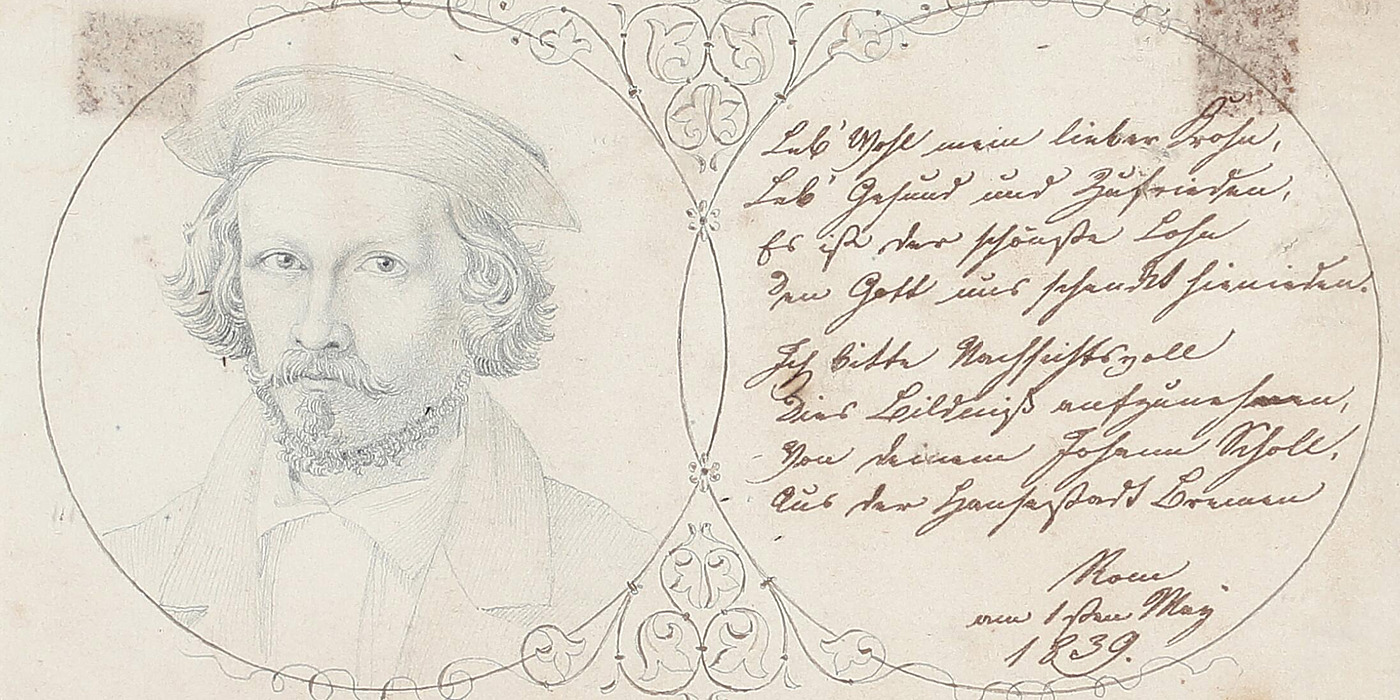 Leb' Wohl mein lieber Krohn,
Leb' Gesund und Zufrieden,
Es ist der schönste Lohn
Den Gott uns schenkt hienieden.
Ich bitte Nachsichtsvoll
Dies Bildniß aufzunehmen,
Von deinem Johann Scholl,
Aus der Hansestadt Bremen
Rom
am 1sten May
1839.